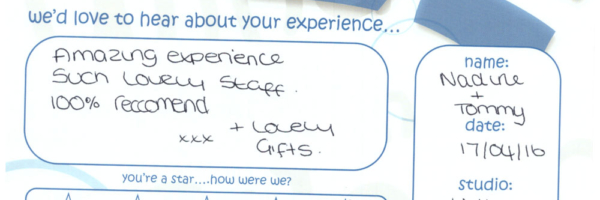 we'd love to hear about your experience...
Amazing experience
Such Lovely Staff.
100% reccomend
+ Lovely
xxx Gifts.
name:
Nadine
+
Tommy
date:
17/04/16
you're a star....how were we?
studio: